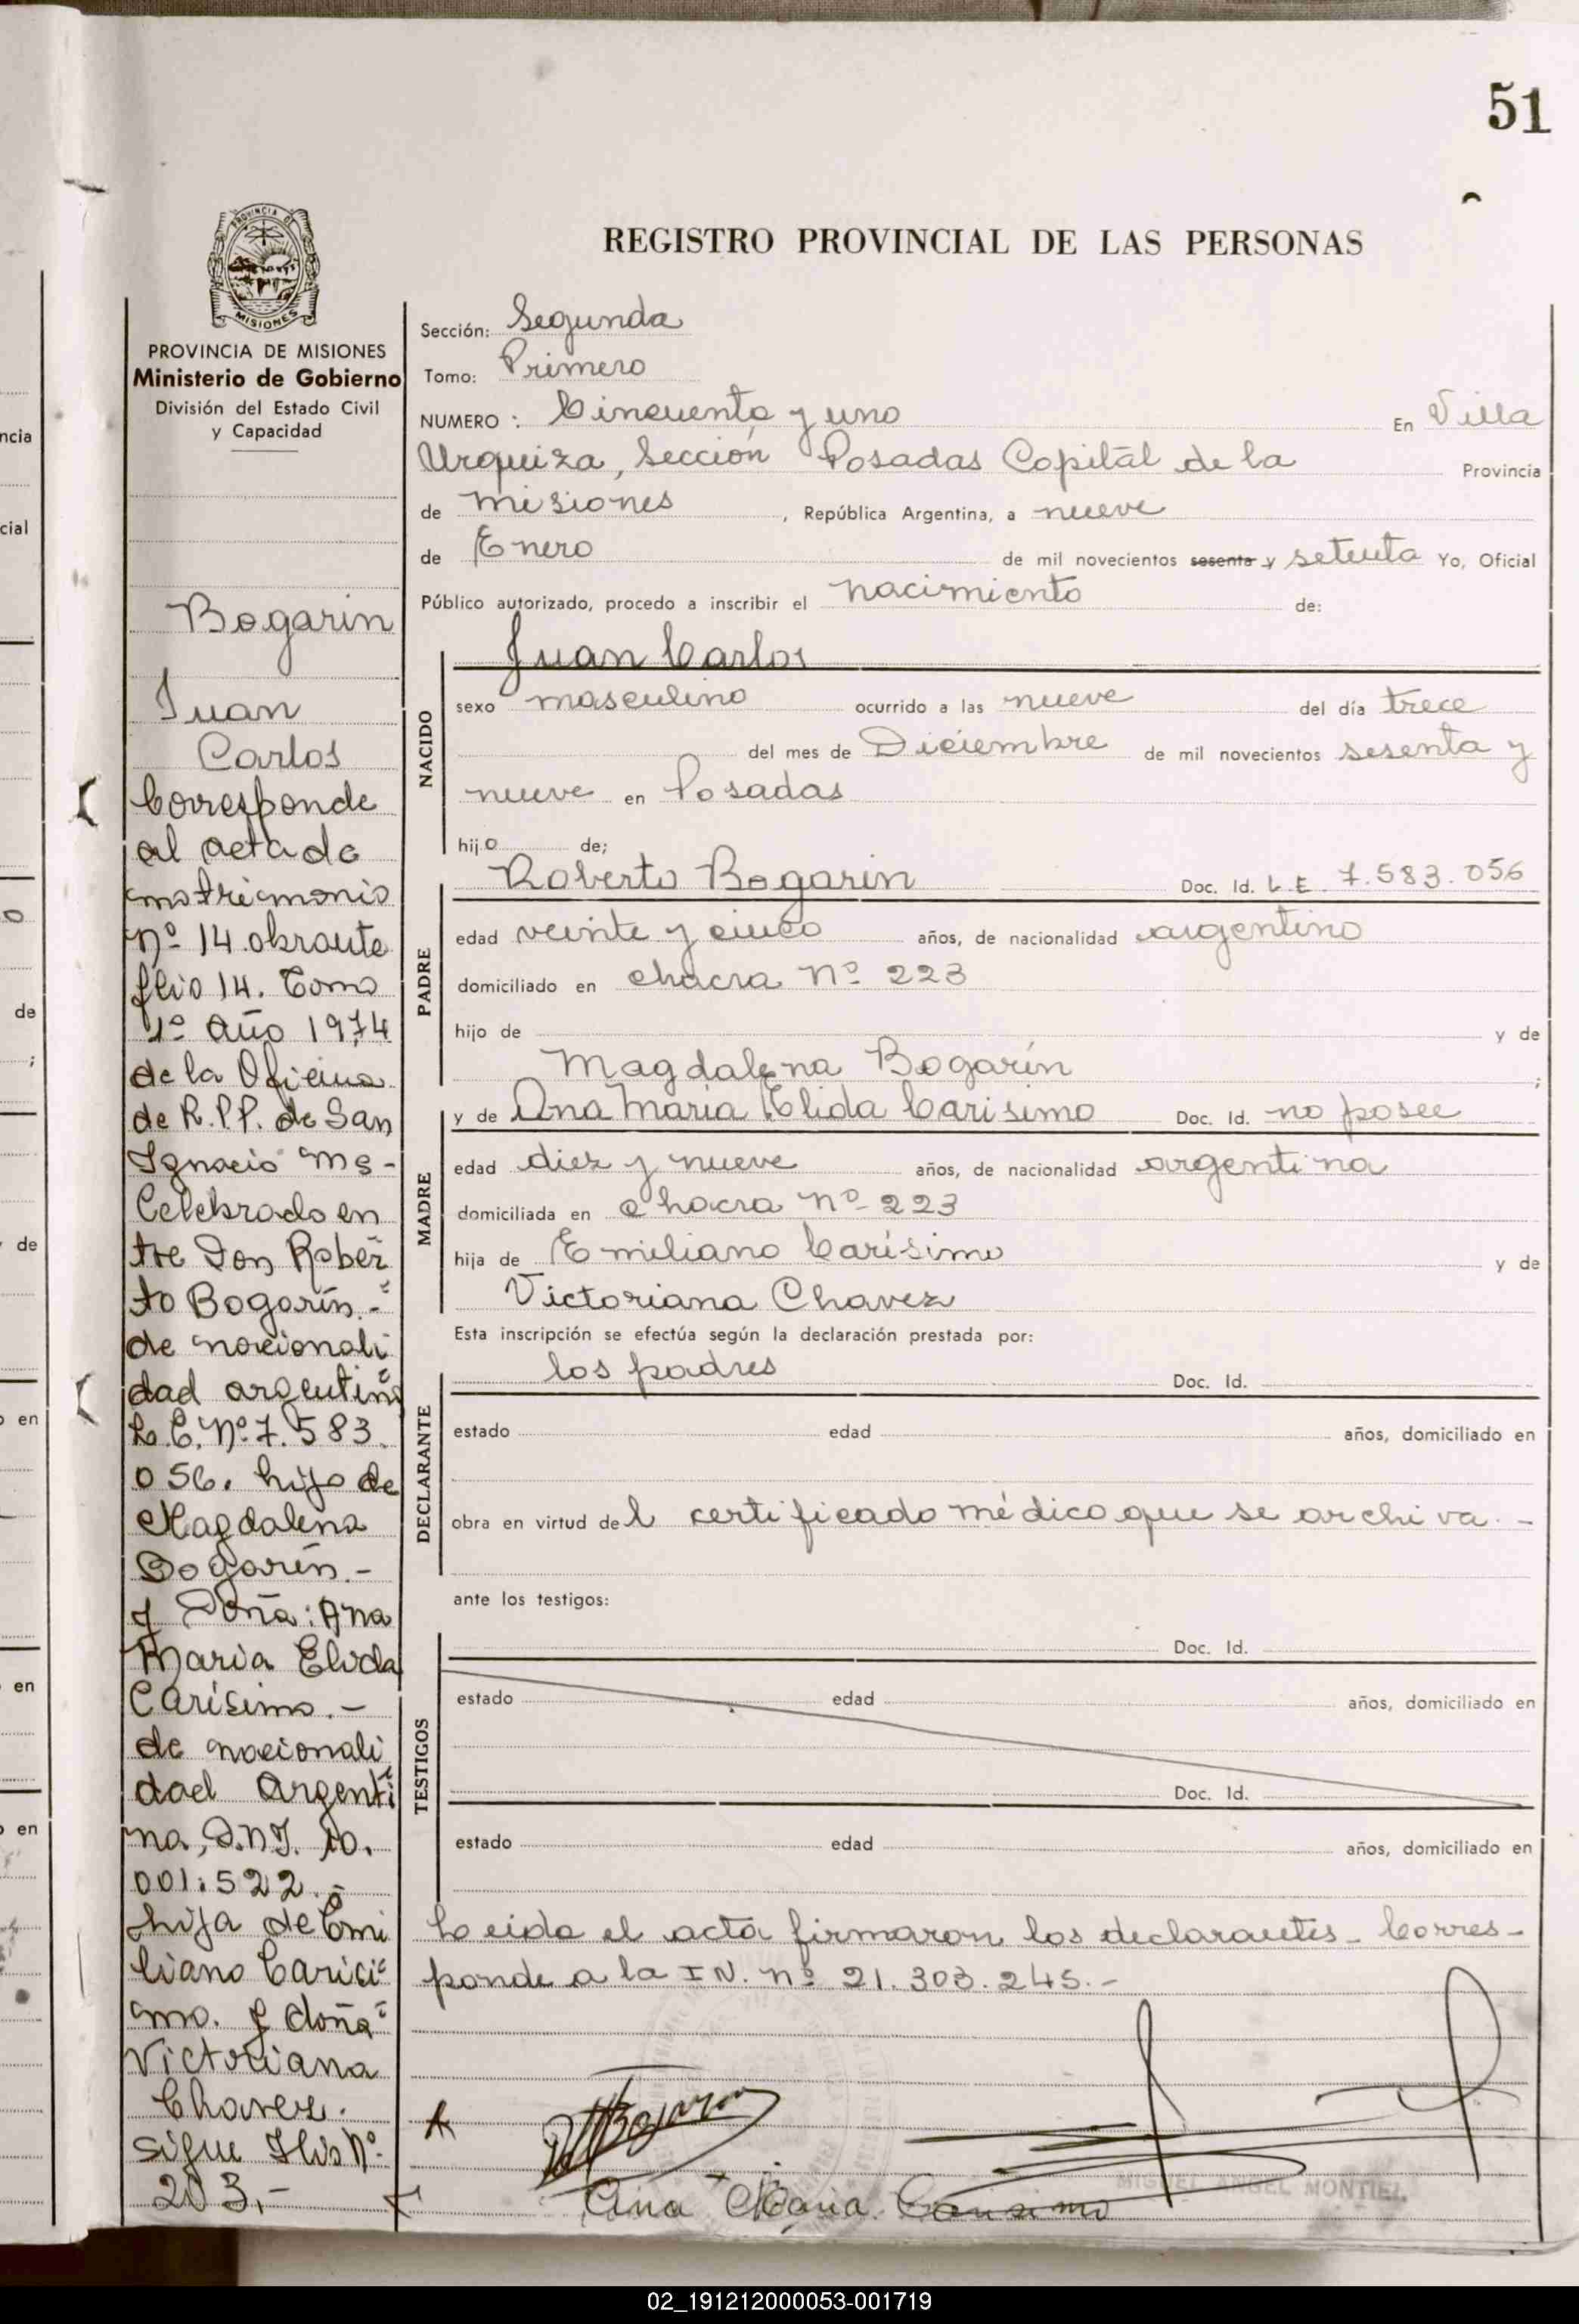 51
REGISTRO PROVINCIAL DE LAS PERSONAS
PROVINCIA DE
MISIONES
PROVINCIA DE MISIONES
Ministerio de Gobierno
División del Estado Civil
y Capacidad
Bogarin
Juan
Carlos
Corresponde
al acta de
matrimonio
Nº 14 obrante
flio 14. Tomo
1º Año 1974
de la Oficina
de R.P.P. de San
Ignacio Ms-
Celebrado en
tre Don Rober
to Bogarín.-
de nacionali
dad argentina
L.E. Nº 7.583.
056. hijo de
Magdalena
Bogarín.-
y Doña: Ana
Maria Elida
Carísimo.-
de nacionali
dad Argenti
na, D.N.I. 10.
001.522.-
hija de Emi
liano Carici
mo. y doña
Victoriana
Chavez.
Sigue flio Nº
203.-
Sección: Segunda
Tomo: Primero
NUMERO : Cincuenta y uno En Villa
Urquiza, Sección Posadas Capital de la Provincia
de Misiones , República Argentina, a nueve
de Enero de mil novecientos sesenta y setenta Yo, Oficial
Público autorizado, procedo a inscribir el nacimiento de:
NACIDO
Juan Carlos
sexo masculino ocurrido a las nueve del día trece
del mes de Diciembre de mil novecientos sesenta y
nueve en Posadas
hijo de;
PADRE
Roberto Bogarin Doc. Id. L.E. 7.583.056
edad veinte y cinco años, de nacionalidad argentino
domiciliado en chacra Nº 223
hijo de y de
Magdalena Bogarín ;
MADRE
y de Ana Maria Elida Carisimo Doc. Id. no posee
edad diez y nueve años, de nacionalidad argentina
domiciliada en chacra Nº 223
hija de Emiliano Carísimo y de
Victoriana Chavez
Esta inscripción se efectúa según la declaración prestada por:
DECLARANTE
los padres Doc. Id.
estado edad años, domiciliado en
obra en virtud del certificado médico que se archiva.-
ante los testigos:
TESTIGOS
Doc. Id.
estado edad años, domiciliado en
Doc. Id.
estado edad años, domiciliado en
Leida el acta firmaron los declarantes- Corres-
ponde a la I N. nº 21.303.245.-
Bogarin
Ana Maria Carisimo
MIGUEL ANGEL MONTIEL
ncia
cial
de
;
de
en
en
en
02_191212000053-001719